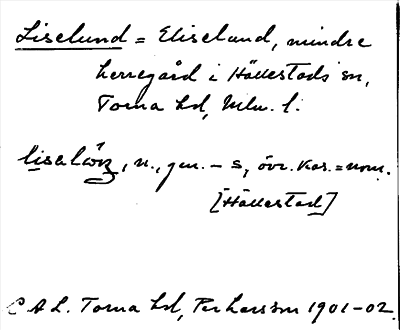 Liselund = Eliselund, mindre
herregård i Hällestads sn,
Torna hd, Mlm. l.
n., gen. – s, övr. kas. = nom.
[Hällestad]
C A L. Torna hd, Per Larsson 1901-02.